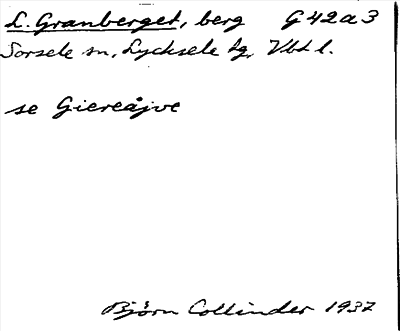 L. Granberget, berg G42a3
Sorsele sn, Lycksele tg, Vbt l.
se Giereåjve
Björn Collinder 1937